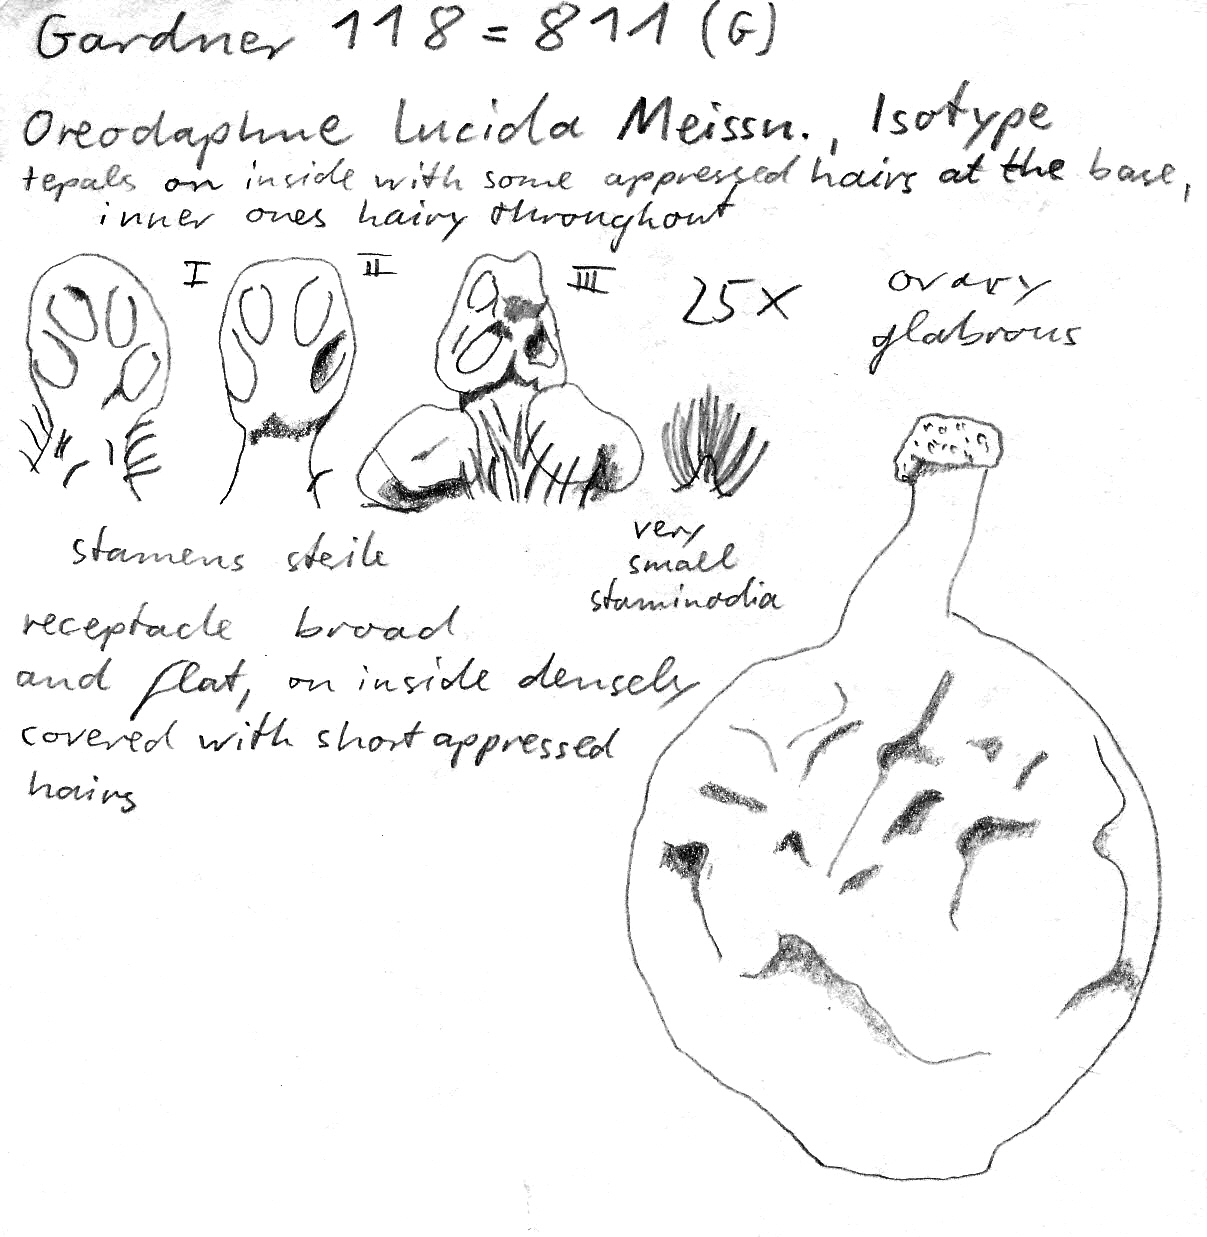 Gardner 118 = 811 (G)
Oreodaphne lucida Meissn., Isotype
tepals on inside with some appressed hairs at the base,
inner ones hairy throughout
I II III 25x
ovary
glabrous
stamens steile
very
small
staminodia
receptacle broad
and flat, on inside densely
covered with short appressed
hairs